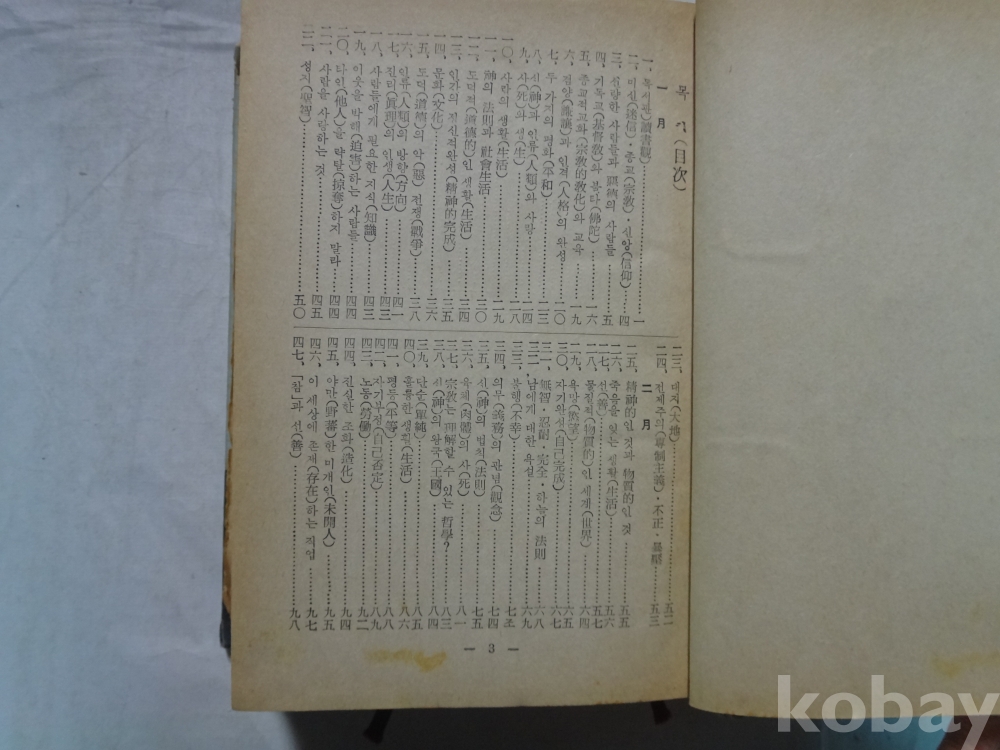 목 차(目次)
一 月
一、 독서관(讀書觀)……一
二、 미신(迷信)·종교(宗敎) 신앙(信仰)……四
三、 선량한 사람들과 사람들……五
四、 기독교(基督敎)와 불타(佛陀)……一六
五、 종교적교화(宗敎的敎化)와 교육……一九
六、 겸양(謙讓)과 인격(人格)의 완성……一〇
七、 두 가지의 평화(平和)……一三
八、 신(神)과 인류(人類)와 사랑……一四
九、 사(死)와 생(生)……一八
一〇、 사람의 생활(生活)……一九
一一、 神의 法則과 社會生活……三〇
一二、 도덕적(道德的)인 생활(生活)……三四
一三、 인간의 정신적완성(精神的完成)……三五
一四、 문화(文化)……三六
一五、 도덕(道德)의 악(惡) 전쟁(戰爭)……三八
一六、 인류(人類)의 방향(方向)……四一
一七、 진리(眞理)의 인생(人生)……四三
一八、 사람들에게 필요한 지식(知識)……四三
一九、 이웃을 박해(迫害)하는 사람들……四四
二〇、 타인(他人)을 략탈(掠奪)하지 말라……四四
二一、 사람을 사랑하는 것……四五
二二、 성지(聖智)……五〇
二三、 대지(大地)……五二
二四、 전제주의(專制主義)·不正·……五三
二 月
二五、 精神的인 것과 物質的인 것……五五
二六、 죽음을 잊는 생활(生活)……五六
二七、 선(善)……五七
二八、 물질적(物質的)인 세계(世界)……六四
二九、 욕망(慾望)……六五
三〇、 자기완성(自己完成)……六七
三一、 無智·忍耐·完全·하늘의 法則……六八
三二、 남에게 대한 욕설……六九
三三、 불행(不幸)……七
三四、 의무(義務)의 관념(觀念)……七四
三五、 신(神)의 법칙(法則)……七五
三六、 육체(肉體)의 사(死)……八一
三七、 宗敎는 理解할 수 있는 哲學?……八三
三八、 신(神)의 왕국(王國)……八四
三九、 단순(單純)……八五
四〇、 훌륭한 생활(生活)……八六
四一、 평등(平等)……八八
四二、 자기부정(自己否定)……八九
四三、 노동(勞働)……九二
四四、 진실한 조화(造化)……九四
四五、 야만(野蕃)한 미개인(未開人)……九五
四六、 이 세상에 존재(存在)하는 직업……九七
四七、 「참」과 선(善)……九八
— 3 —
kobay